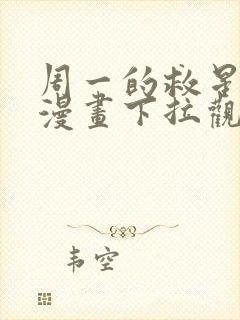 周一的救星
漫畫下拉觀
韦空